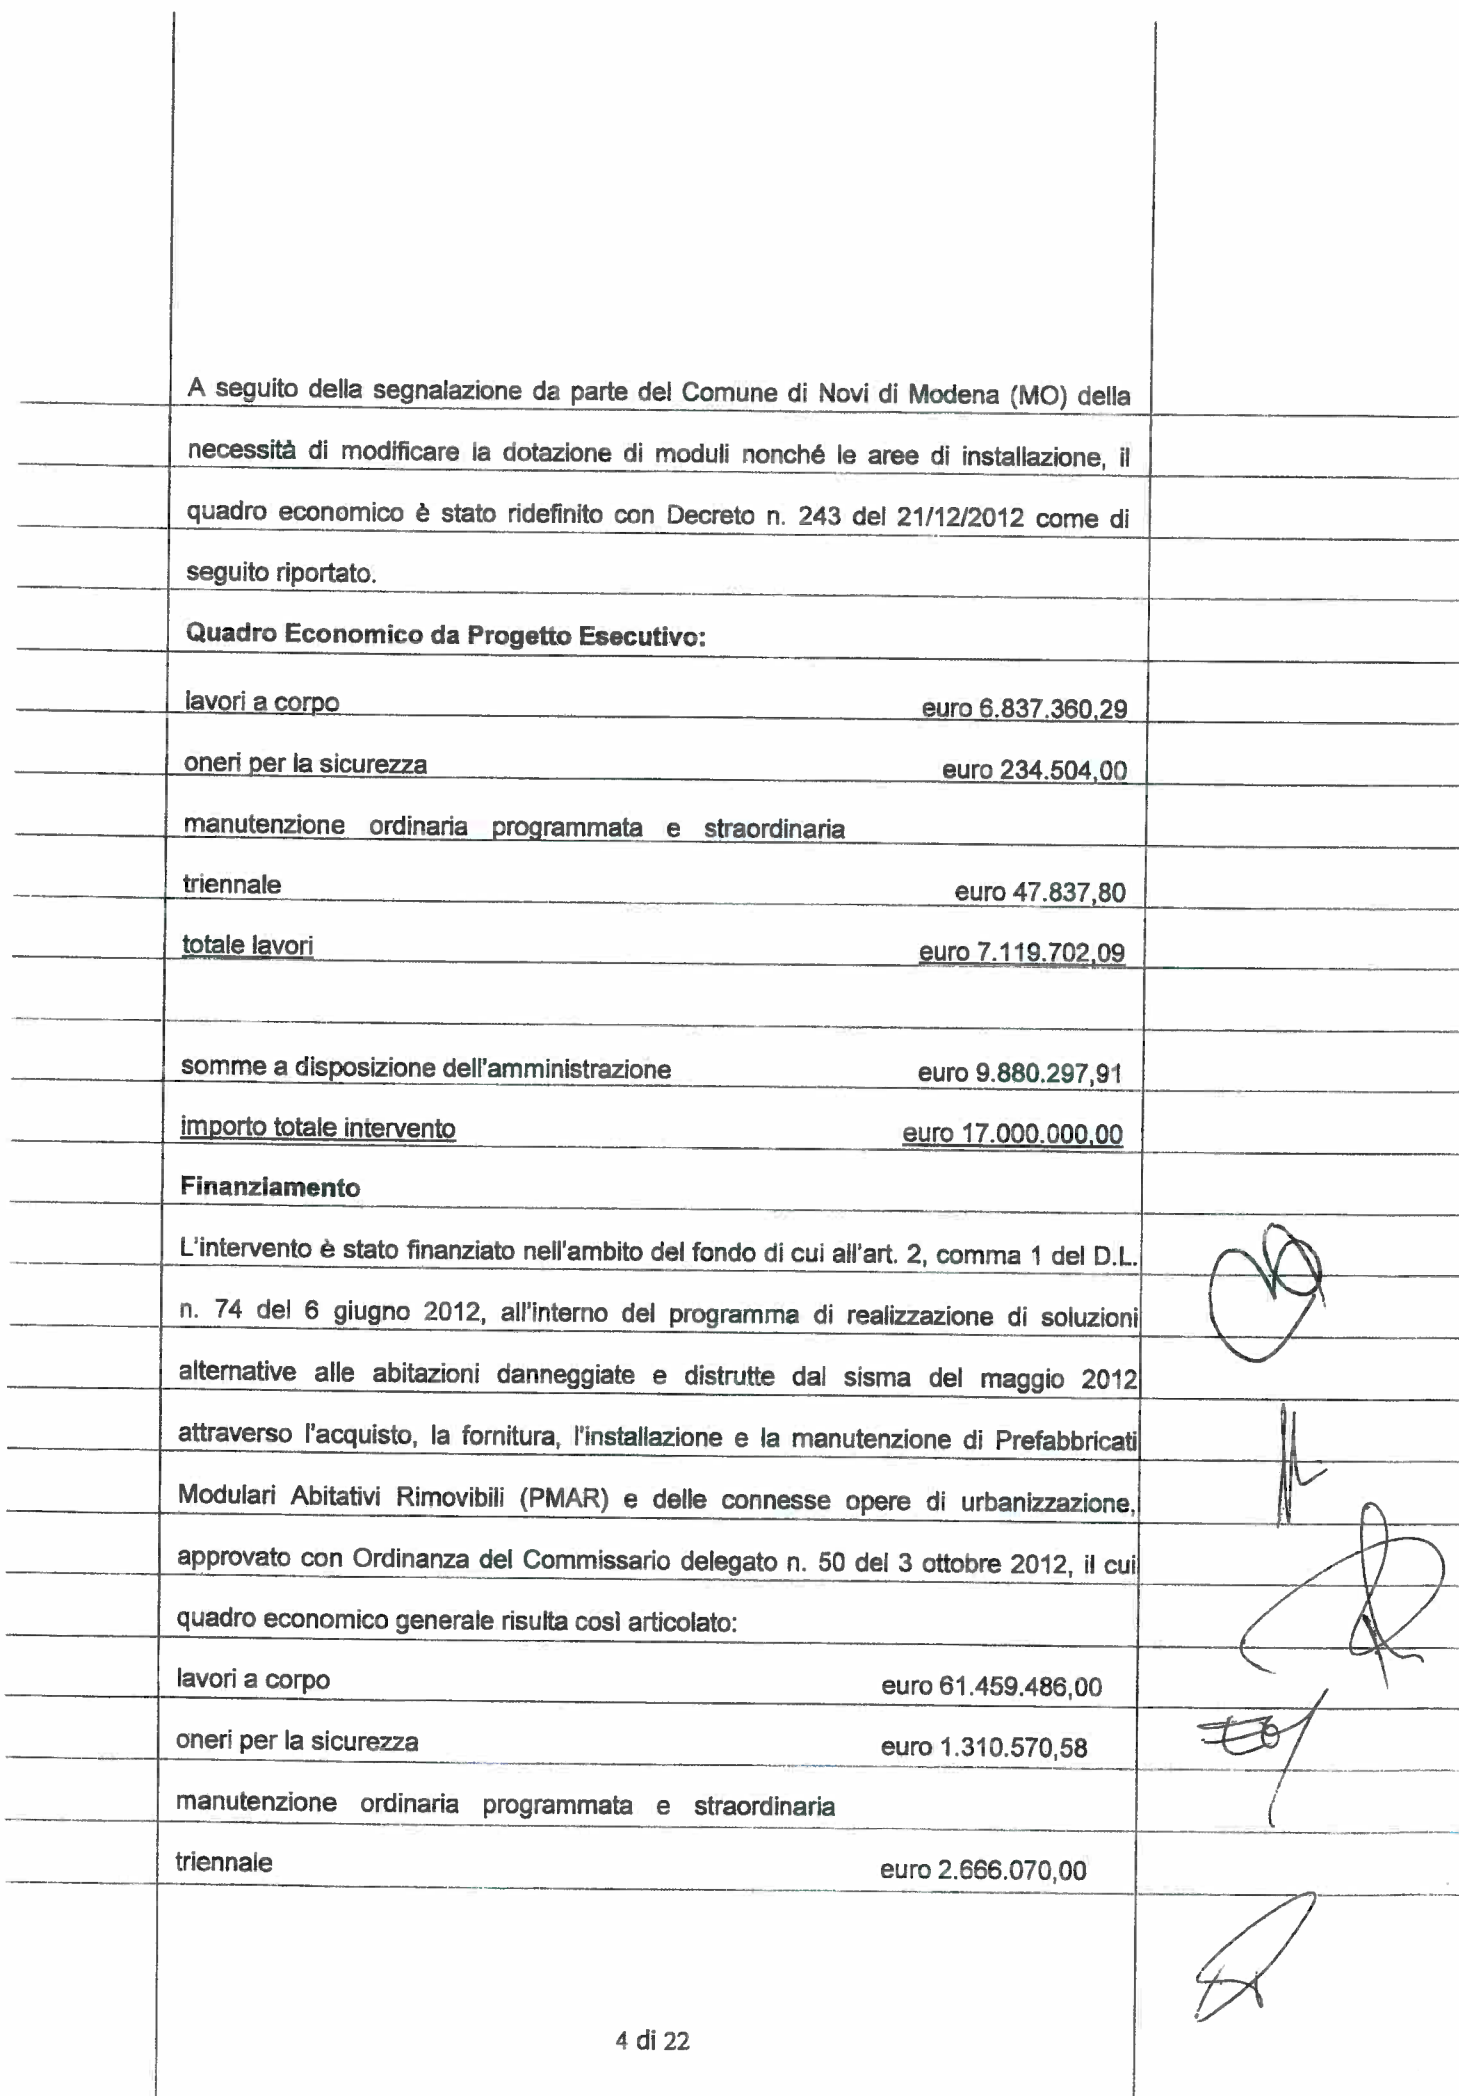 A seguito della segnalazione da parte del Comune di Novi di Modena (MO) della
necessità di modificare la dotazione di moduli nonché le aree di installazione, il
quadro economico è stato ridefinito con Decreto n. 243 del 21/12/2012 come di
seguito riportato.
Quadro Economico da Progetto Esecutivo:
lavori a corpo euro 6.837.360,29
oneri per la sicurezza euro 234.504,00
manutenzione ordinaria programmata e straordinaria
triennale euro 47.837,80
totale lavori euro 7.119.702,09
somme a disposizione dell'amministrazione euro 9.880.297,91
importo totale intervento euro 17.000.000,00
Finanziamento
L'intervento è stato finanziato nell'ambito del fondo di cui all'art. 2, comma 1 del D.L.
n. 74 del 6 giugno 2012, all'interno del programma di realizzazione di soluzioni
alternative alle abitazioni danneggiate e distrutte dal sisma del maggio 2012
attraverso l'acquisto, la fornitura, l'installazione e la manutenzione di Prefabbricati
Modulari Abitativi Rimovibili (PMAR) e delle connesse opere di urbanizzazione,
approvato con Ordinanza del Commissario delegato n. 50 del 3 ottobre 2012, il cui
quadro economico generale risulta così articolato:
lavori a corpo euro 61.459.486,00
oneri per la sicurezza euro 1.310.570,58
manutenzione ordinaria programmata e straordinaria
triennale euro 2.666.070,00
4 di 22